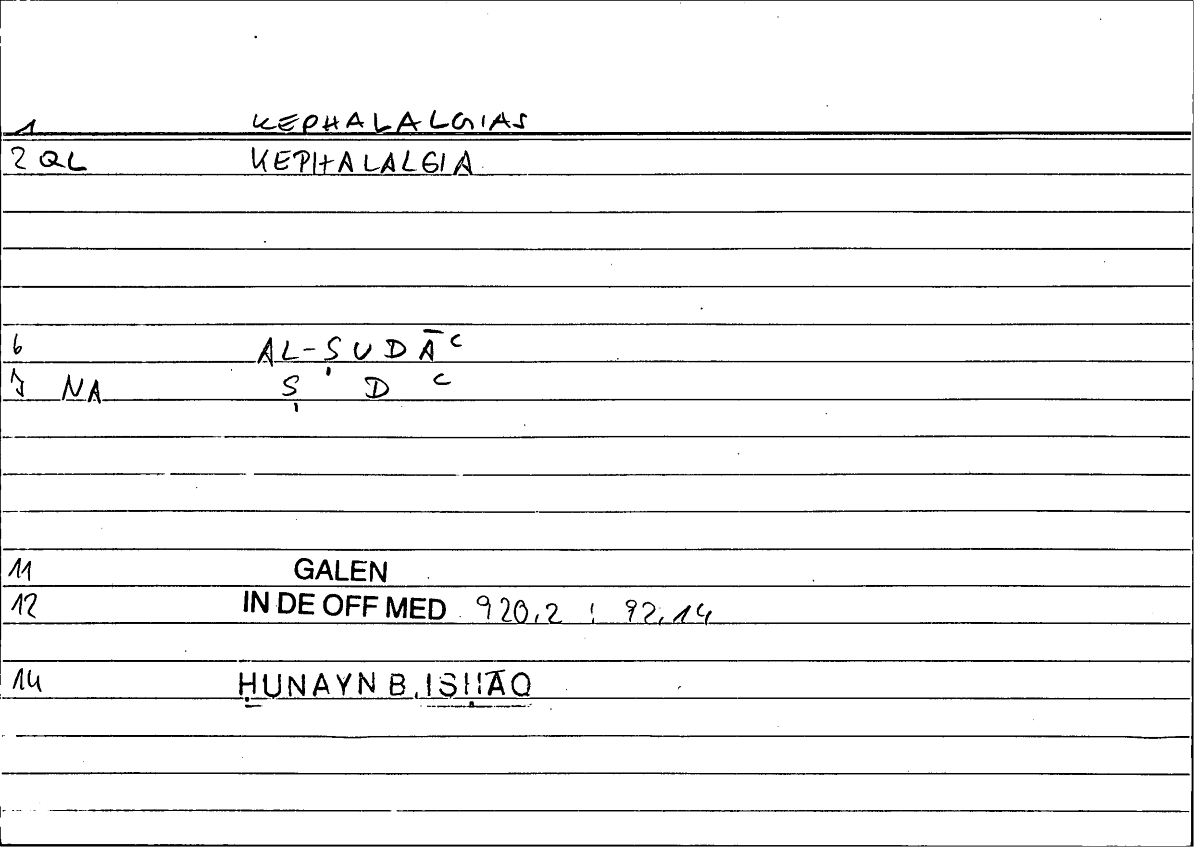 1 KEPHALALGIAS
2 QL KEPHALALGIA
6 AL-ṢUDĀʿ
7 NA Ṣ D ʿ
11 GALEN
12 IN DE OFF MED 920,2 : 92,14
14 ḤUNAYN B. ISḤĀQ